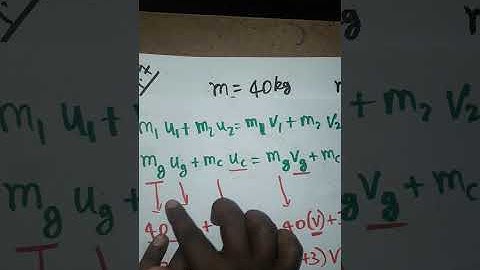 m = 40kg
m₁ u₁ + m₂ u₂ = m₁ v₁ + m₂ v₂
m_g u_g + m_c u_c = m_g v_g + m_c
40 + 40(v) + 3
+3) V